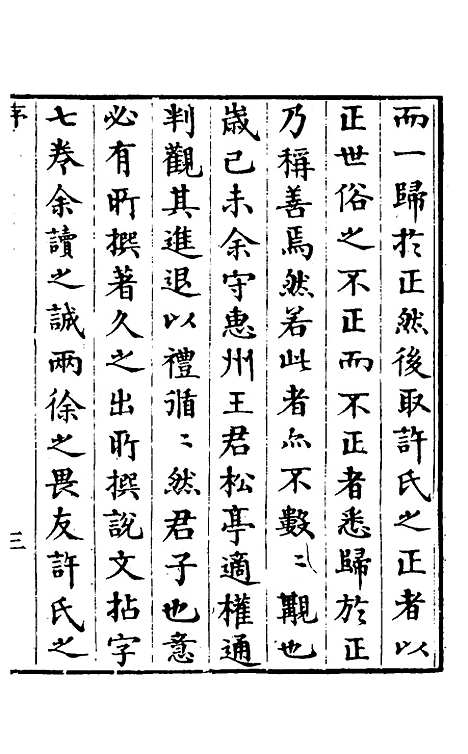 而一歸於正然後取許氏之正者以
正世俗之不正而不正者悉歸於正
乃稱善焉然若此者亦不數〻覯也
歲己未余守惠州王君松亭適權通
判觀其進退以禮循〻然君子也意
必有所撰著久之出所撰說文拈字
七卷余讀之誠兩徐之畏友許氏之
序
三